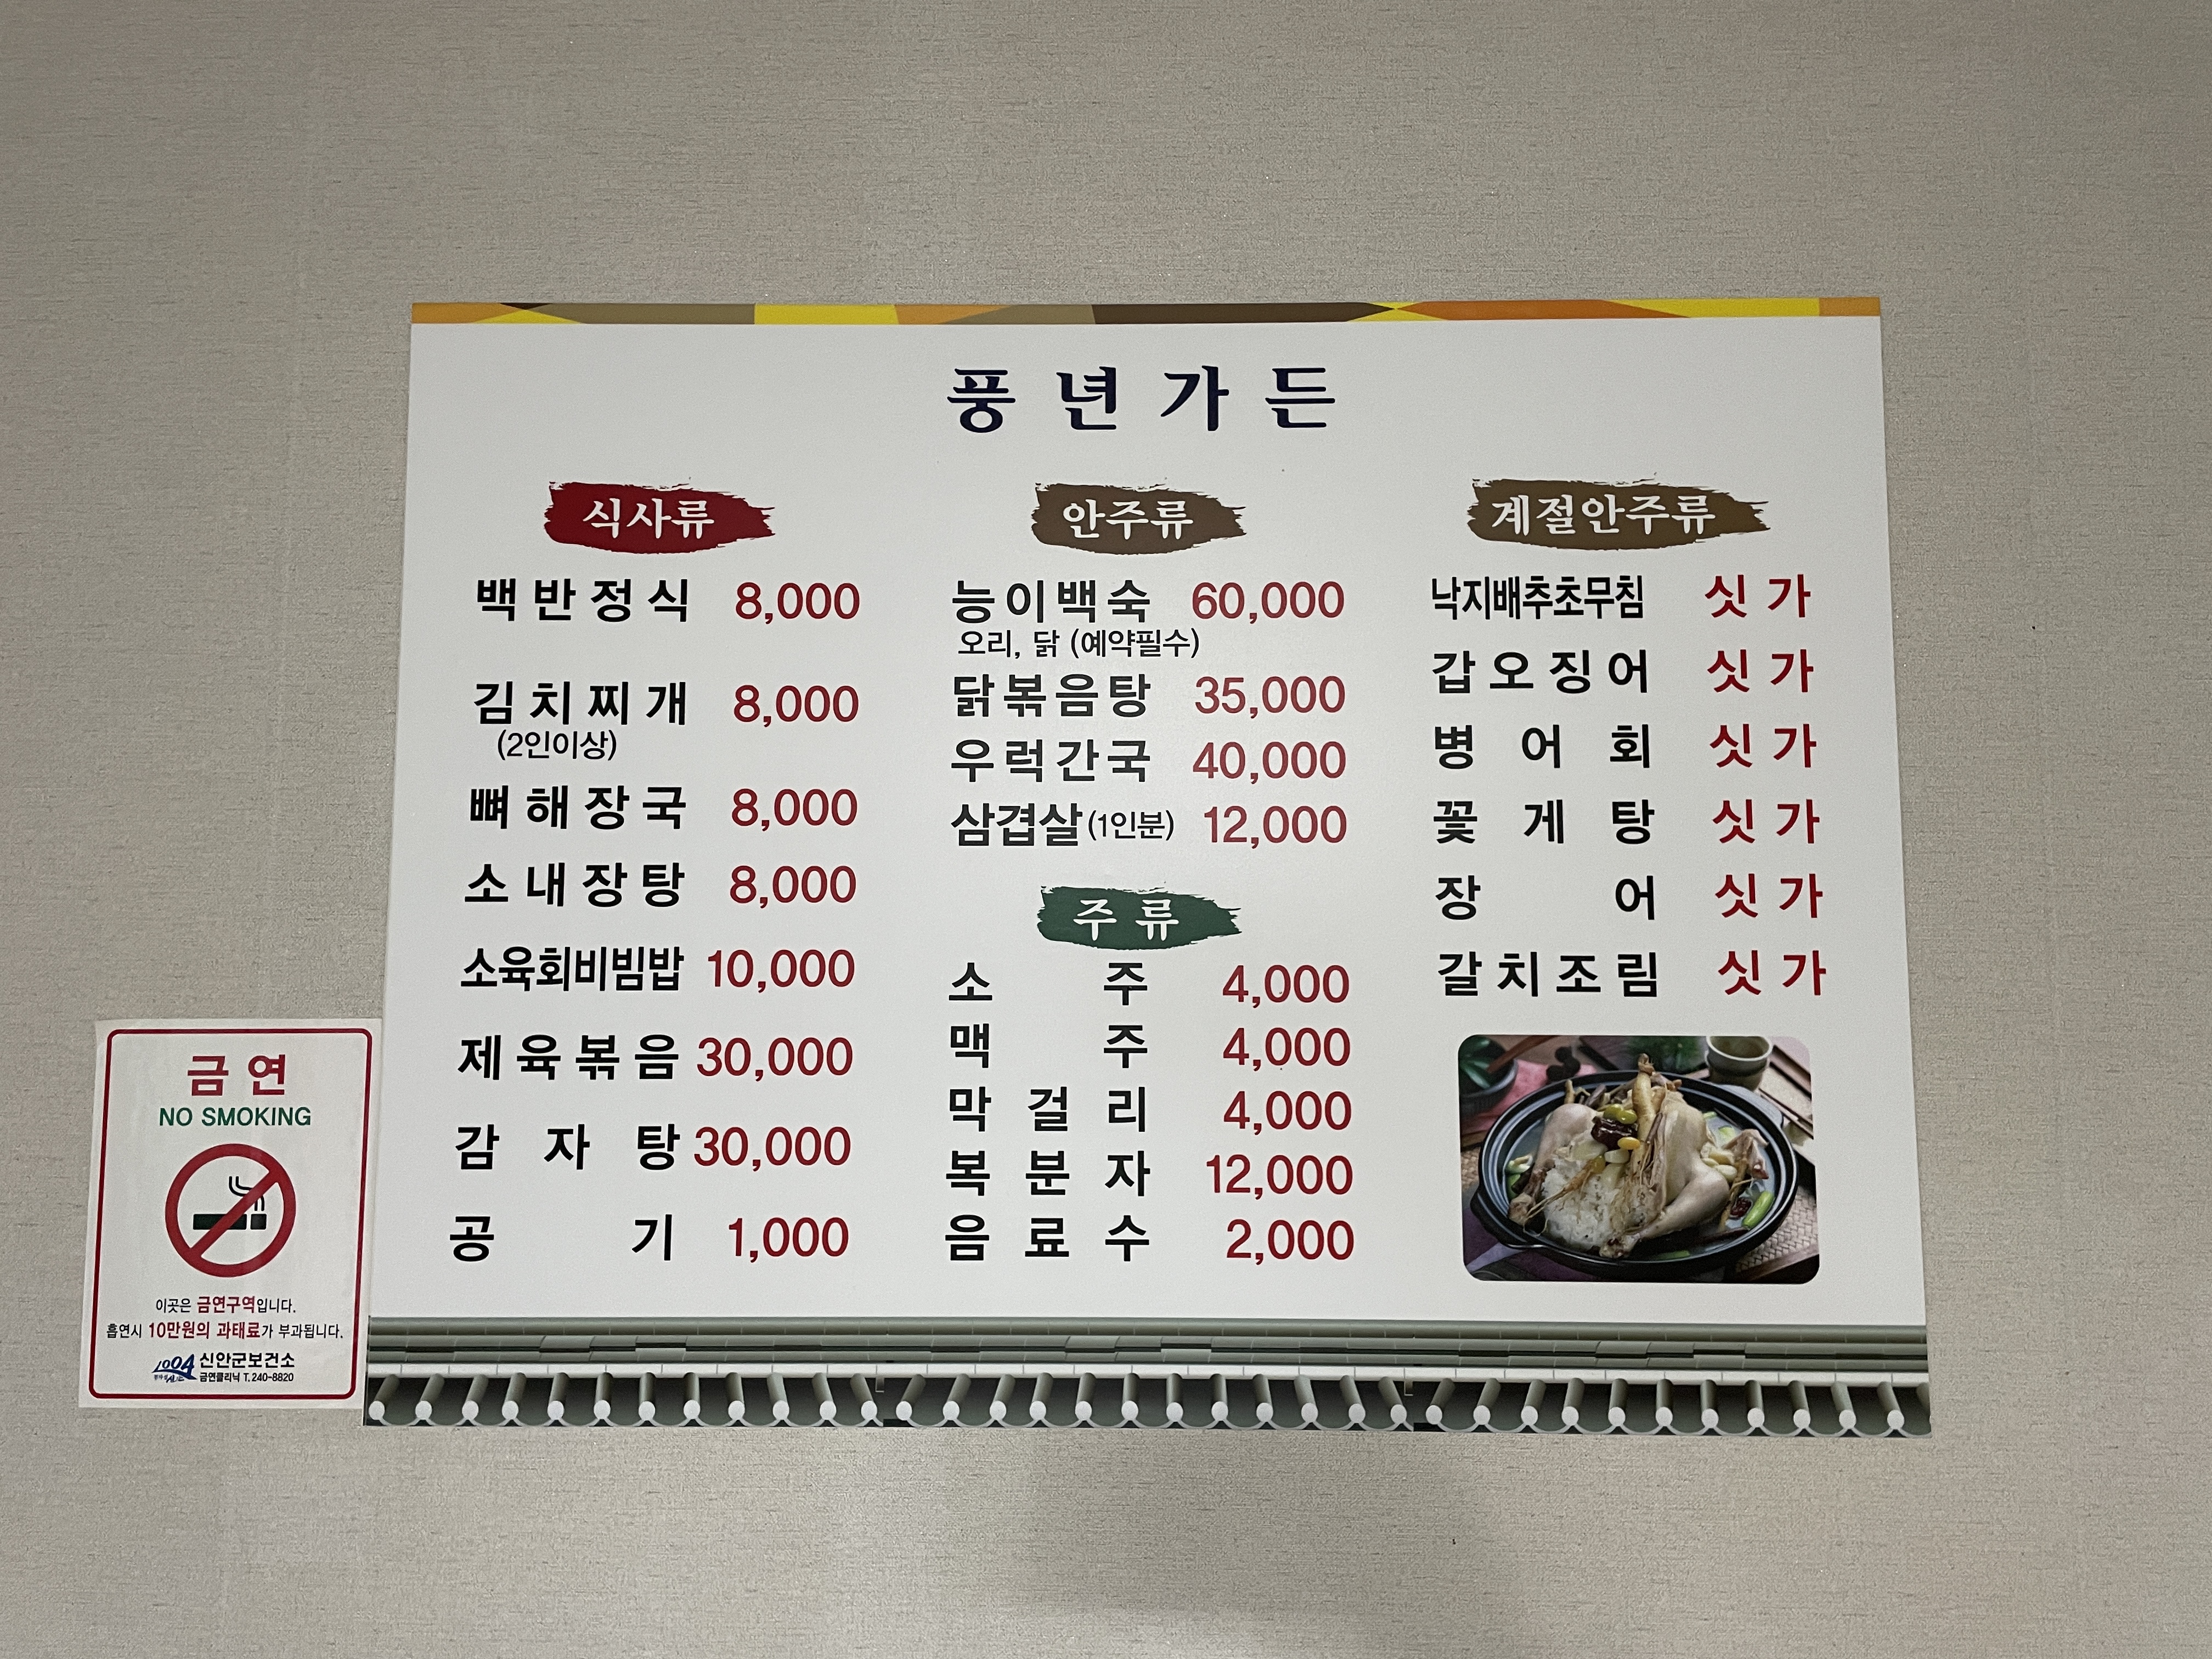 풍년가든
식사류
백반정식 8,000
김치찌개 8,000
(2인이상)
뼈해장국 8,000
소내장탕 8,000
소육회비빔밥 10,000
제육볶음 30,000
감자탕 30,000
공기 1,000
안주류
능이백숙 60,000
오리, 닭 (예약필수)
닭볶음탕 35,000
우럭간국 40,000
삼겹살(1인분) 12,000
주류
소주 4,000
맥주 4,000
막걸리 4,000
복분자 12,000
음료수 2,000
계절안주류
낙지배추초무침 싯가
갑오징어 싯가
병어회 싯가
꽃게탕 싯가
장어 싯가
갈치조림 싯가
금연
NO SMOKING
이곳은 금연구역입니다.
흡연시 10만원의 과태료가 부과됩니다.
1004 신안군보건소
금연클리닉 T.240-8820